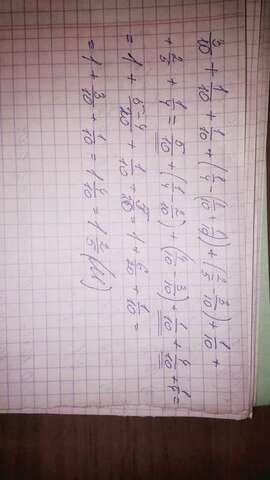 3/10 + 1/10 + 1/10 + (1/4 - (1/10 + 1/10)) + (2/5 - 2/10) + 1/10 +
+ 2/5 + 1/4 = 5/10 + (1/4 - 2/10) + (4/10 - 3/10) + 1/10 + 4/10 + 1/4 =
= 1 + (5-4)/20 + 1/10 + 5/20 = 1 + 6/20 + 1/10 =
= 1 + 3/10 + 1/10 = 1 4/10 = 1 2/5